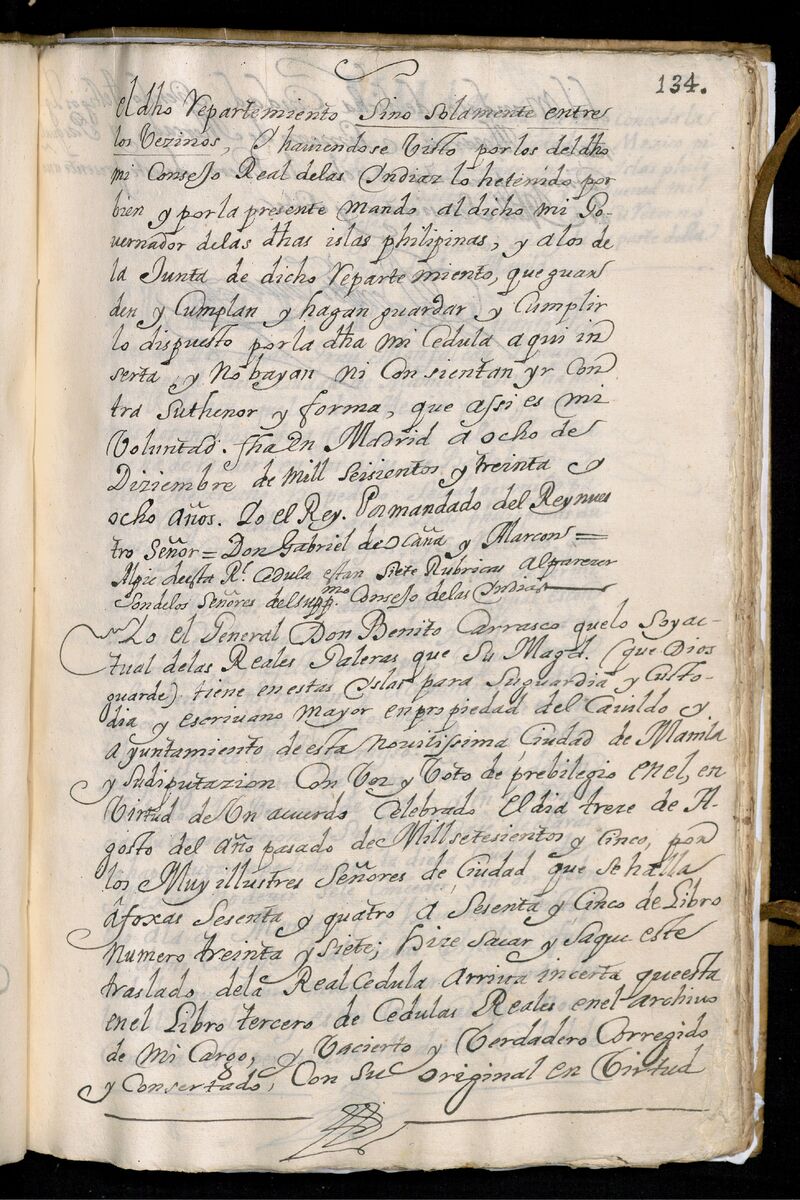 134.
el dho Repartimiento Sino Solamente entre
los Vezinos, Y haviendose Visto por los del dho
mi Consejo Real delas Yndias lo hetenido por
bien y por la presente mando al dicho mi Go-
vernador delas dhas islas philipinas, y alos de
la Junta de dicho Repartimiento, que guar
den y Cumplan y hagan guardar y Cumplir
lo dispuesto por la dha mi Cedula aqui in
serta y No bayan ni Consientan yr con
tra Suthenor y forma, que assi es mi
Voluntad. fha En Madrid a ocho de
Diziembre de Mill Seisientos y treinta y
ocho años. Yo el Rey. Por mandado del Rey nues
tro Señor = Don Gabriel de Ocaña y Alarcon =
Alpie deesta Rl. Cedula estan Siete Rubricas alparezer
Son delos Señores del supp.mo Consejo delas Yndias
Yo el General Don Benito Carrasco quelo Soy ac-
tual delas Reales Galeras que Su Magd. (que Dios
guarde) tiene en estas Yslas para Suguardia y Custo-
dia y escrivano mayor en propiedad del Cavildo y
Ayuntamiento de esta Novilissima Ciudad de Manila
y Sudiputazion Con Voz y Voto de prebilegio en el, en
Virtud de Un acuerdo Celebrado El dia treze de A-
gosto del año pasado de Mill setesientos y Cinco, por
los Muy illustres Señores de Ciudad que se halla
afoxas Sesenta y quatro a Sesenta y Cinco de Libro
Numero treinta y Siete; hize Sacar y Saque este
traslado dela Real Cedula arriva incerta que esta
en el Libro tercero de Cedulas Reales en el archivo
de mi Cargo, y Vacierto y Verdadero Corregido
y Consertado, Con Su original en Virtud